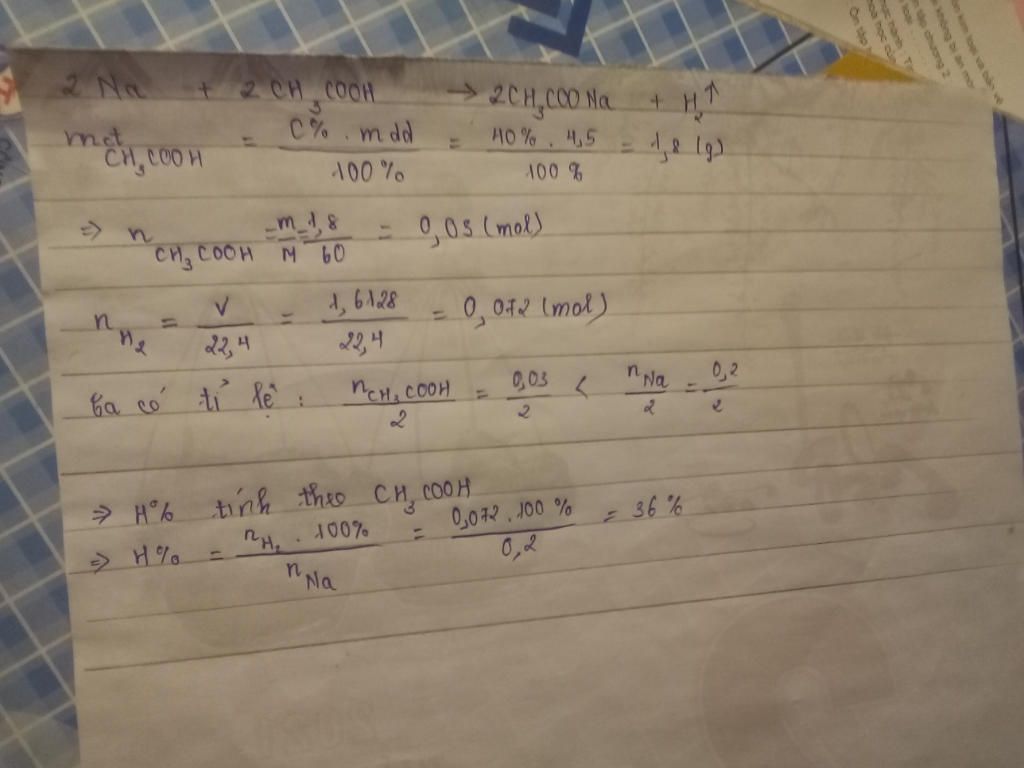 2 Na + 2 CH₃COOH → 2CH₃COONa + H₂↑
mct CH₃COOH = C% . mdd / 100% = 40% . 4,5 / 100% = 1,8 (g)
=> n CH₃COOH = m/M = 1,8/60 = 0,03 (mol)
n H₂ = V/22,4 = 1,6128/22,4 = 0,072 (mol)
Ta có tỉ lệ : nCH₃COOH/2 = 0,03/2 < nNa/2 = 0,2/2
=> H% tính theo CH₃COOH
=> H% = nH₂ . 100% / nNa = 0,072 . 100% / 0,2 = 36%